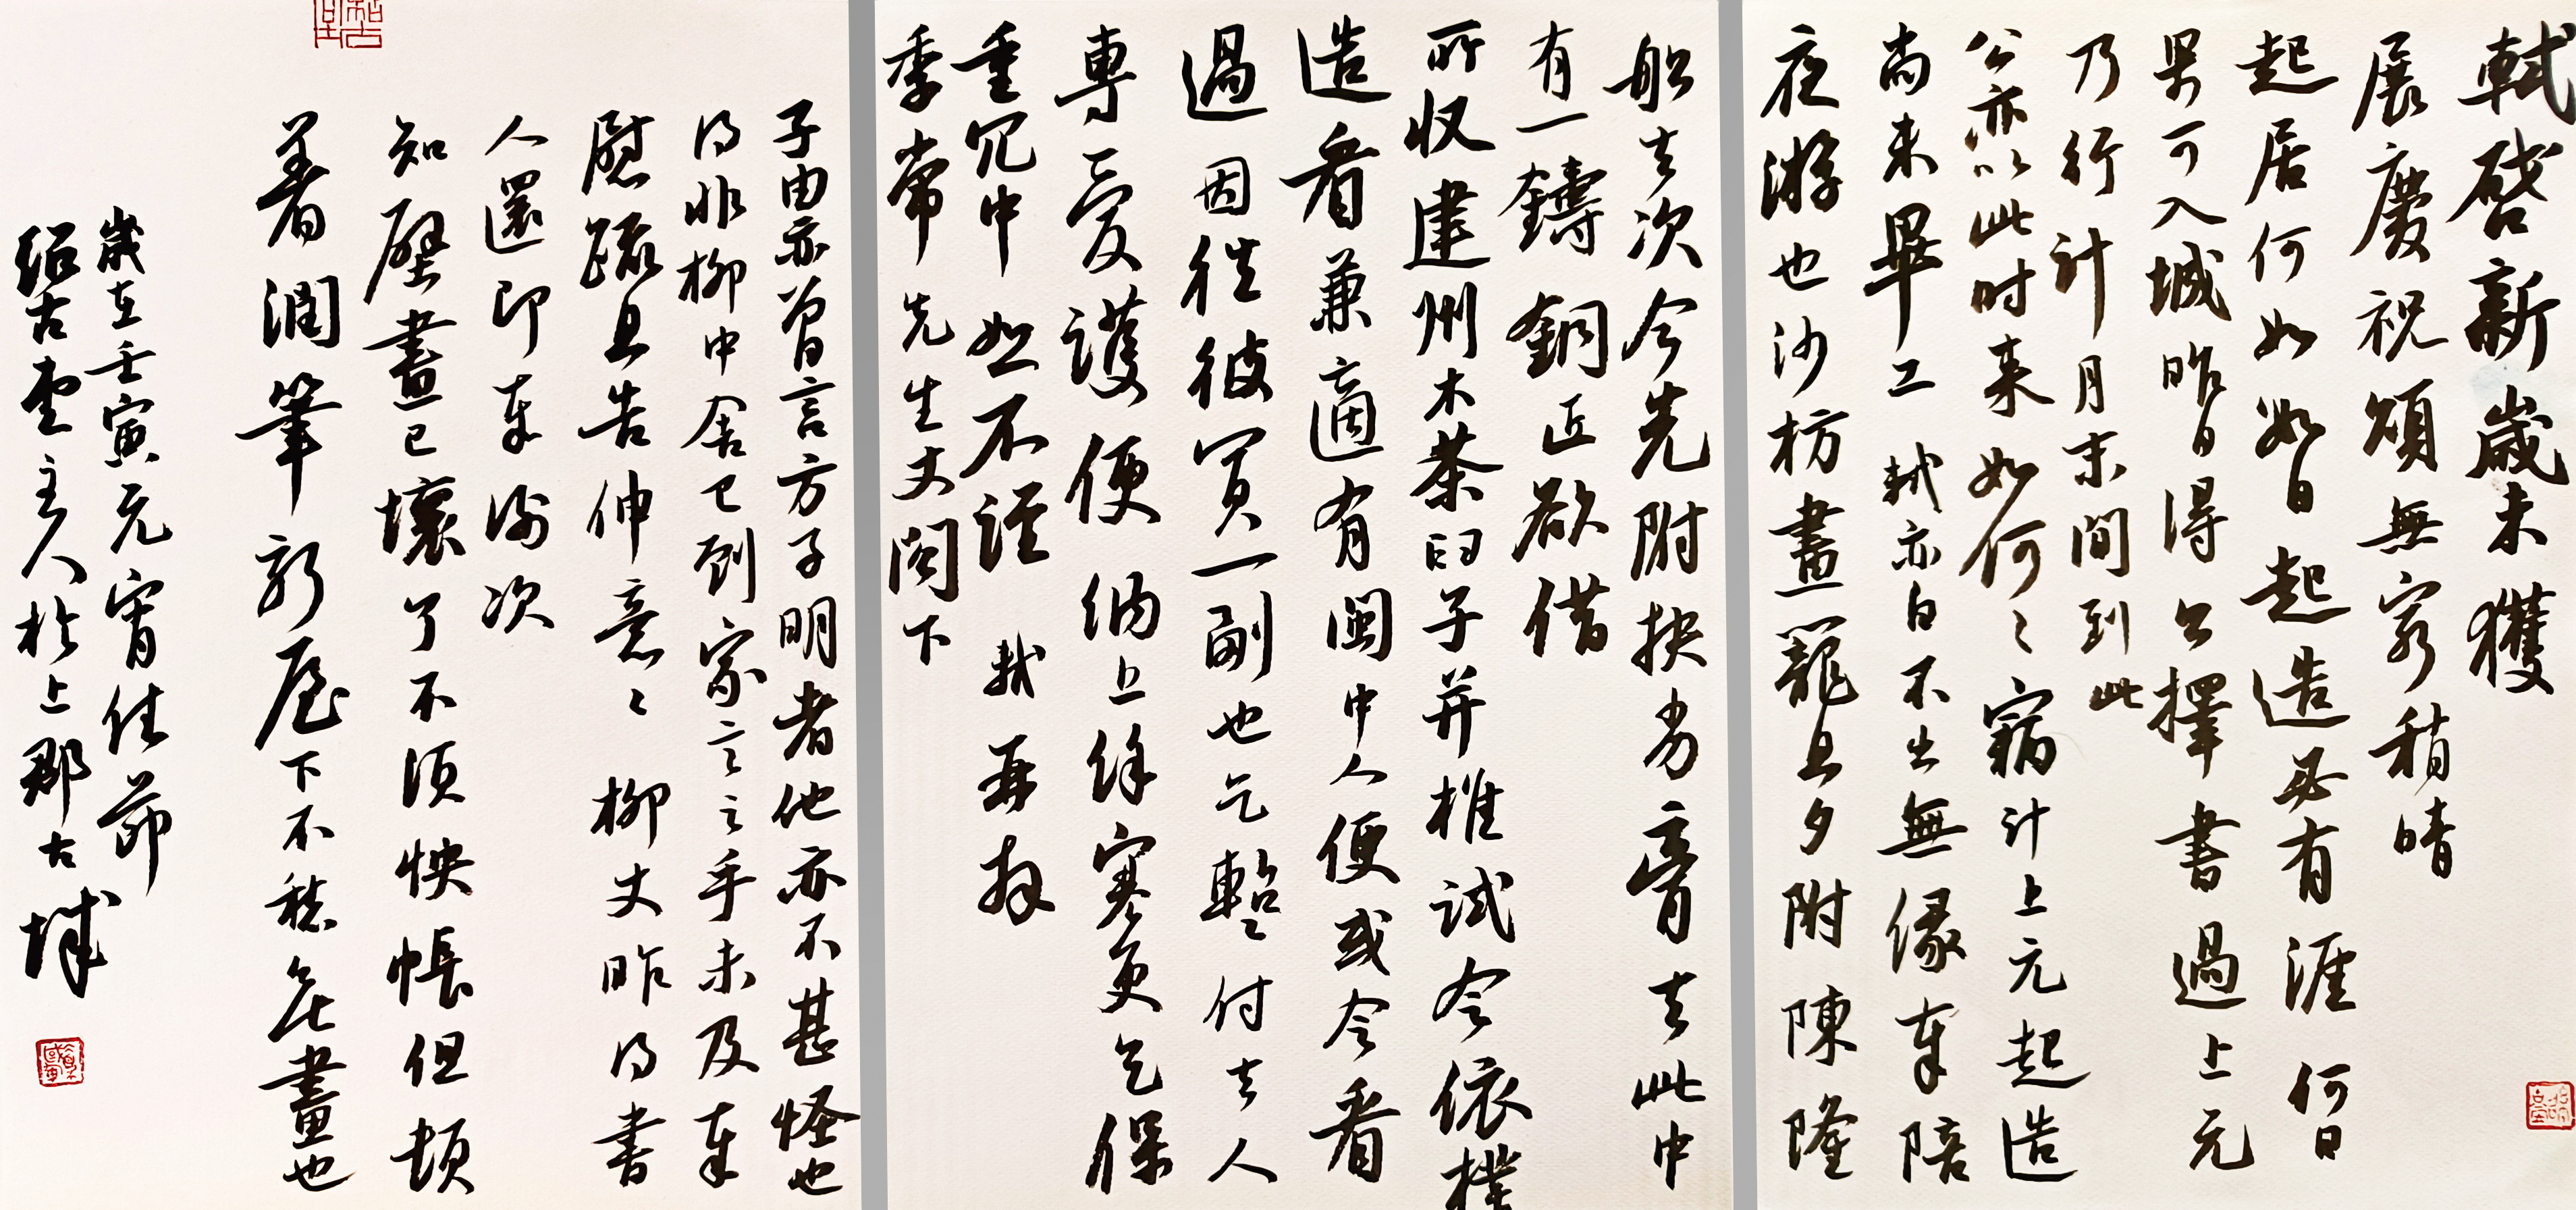 軾啓新歲未獲
展慶祝頌無窮稍晴
起居何如數日起造必有涯何日
果可入城昨日得公擇書過上元
乃行計月末間到此
公亦以此时来如何〻竊计上元起造
尚未畢工軾亦自不出無緣奉陪
夜游也沙枋畫籠旦夕附陳隆
船去次今先附扶劣膏去此中
有一鑄銅匠欲借
所收建州木茶臼子并椎試令依樣
造看兼適有閩中人便或令看
過因往彼買一副也乞暫付去人
專〻愛護便納上餘寒更乞保
重冗中恕不謹軾再拜
季常先生丈閣下
子由亦曾言方子明者他亦不甚怪也
得非柳中舍已到家言之乎未及奉
慰疏且告伸意〻柳丈昨得書
人還即奉謝次
知壁畫已壞了不須怏悵但頓
著潤筆新屋下不愁無畫也
歲在壬寅元宵佳節
紹古堂主人於上郡古城